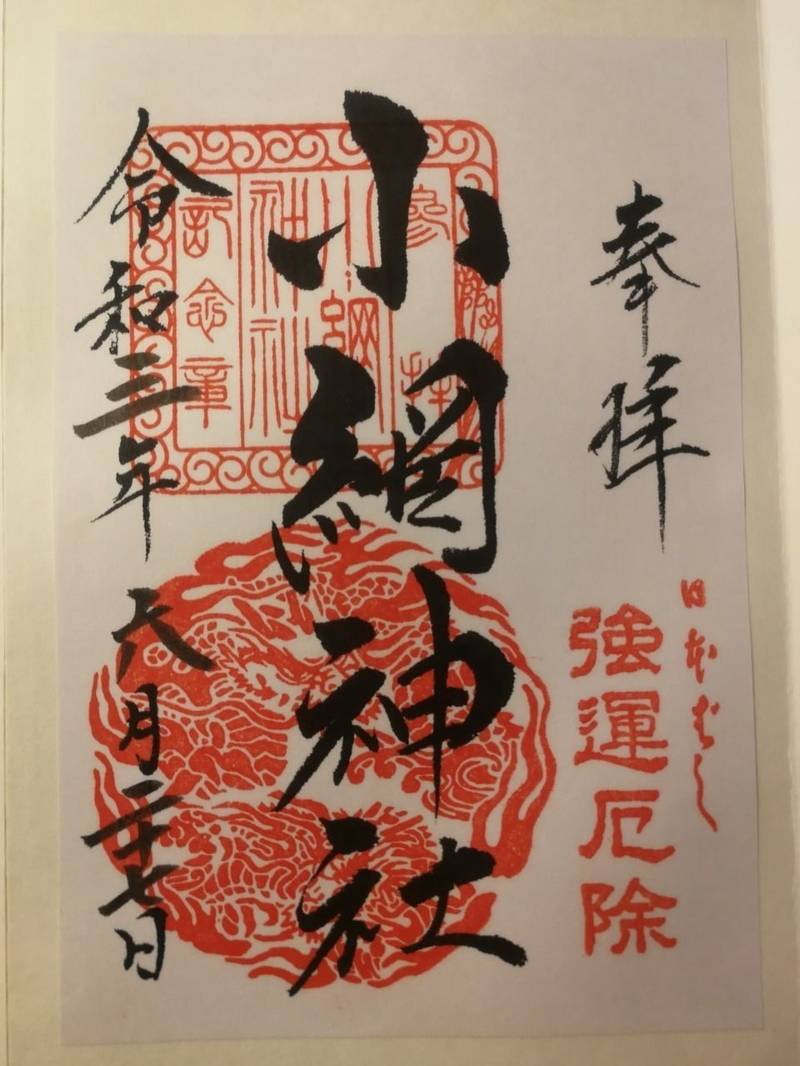 奉拝
日本ばし
強運厄除
小網神社
参拝
小網
神社
記念章
令和三年六月二十七日